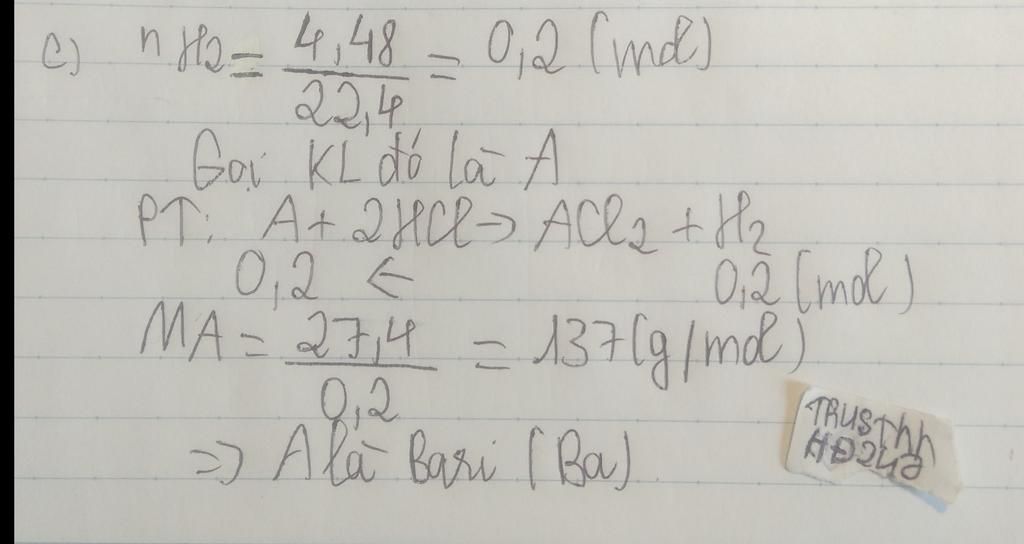 c) nH2 = 4,48 / 22,4 = 0,2 (mol)
Gọi KL đó là A
PT: A + 2HCl → ACl2 + H2
0,2 ← 0,2 (mol)
MA = 27,4 / 0,2 = 137 (g/mol)
⇒ A là Bari (Ba)